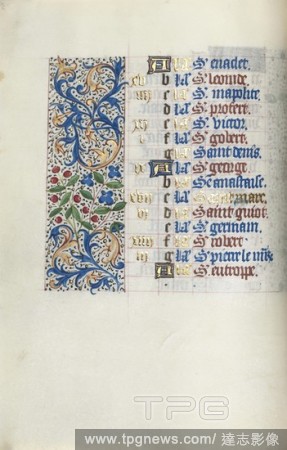 A S' enadet.
b S' leonide.
c S' mapolite
d S' protert
e S' victor.
f S' gobert.
g Saint denis.
A S' george.
b Sē anastaise.
c marc.
d Saint guiot.
e S' germain.
f S' robert
g S' pierre le
A S' eutroppe.
TPG
www.tpgnews.com/達志影像